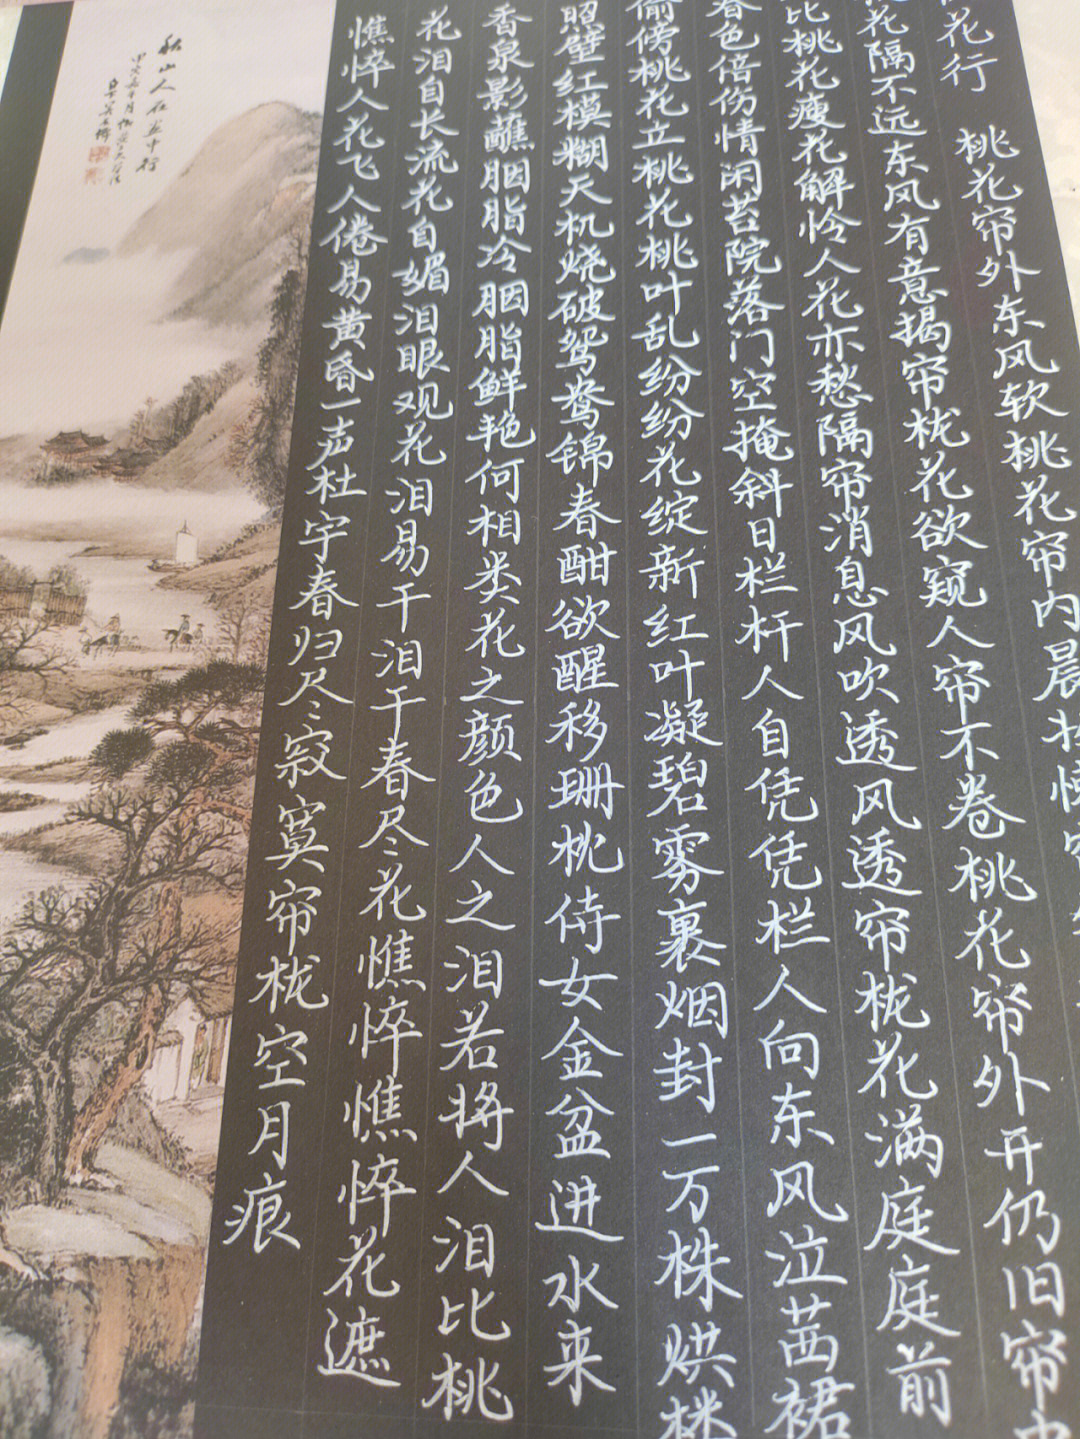 花行 桃花帘外东风软桃花帘内晨妆懒帘
花隔不远东风有意揭帘栊花欲窥人帘不卷桃花帘外开仍旧帘中
比桃花瘦花解怜人花亦愁隔帘消息风吹透风透帘栊花满庭庭前
春色倍伤情闲苔院落门空掩斜日栏杆人自凭凭栏人向东风泣茜裙
偷傍桃花立桃花桃叶乱纷纷花绽新红叶凝碧雾裹烟封一万株烘楼
照壁红模糊天机烧破鸳鸯锦春酣欲醒移珊枕侍女金盆进水来
香泉影蘸胭脂冷胭脂鲜艳何相类花之颜色人之泪若将人泪比桃
花泪自长流花自媚泪眼观花泪易干泪干春尽花憔悴憔悴花遮
憔悴人花飞人倦易黄昏一声杜宇春归尽寂寞帘栊空月痕
秋山人在画中行